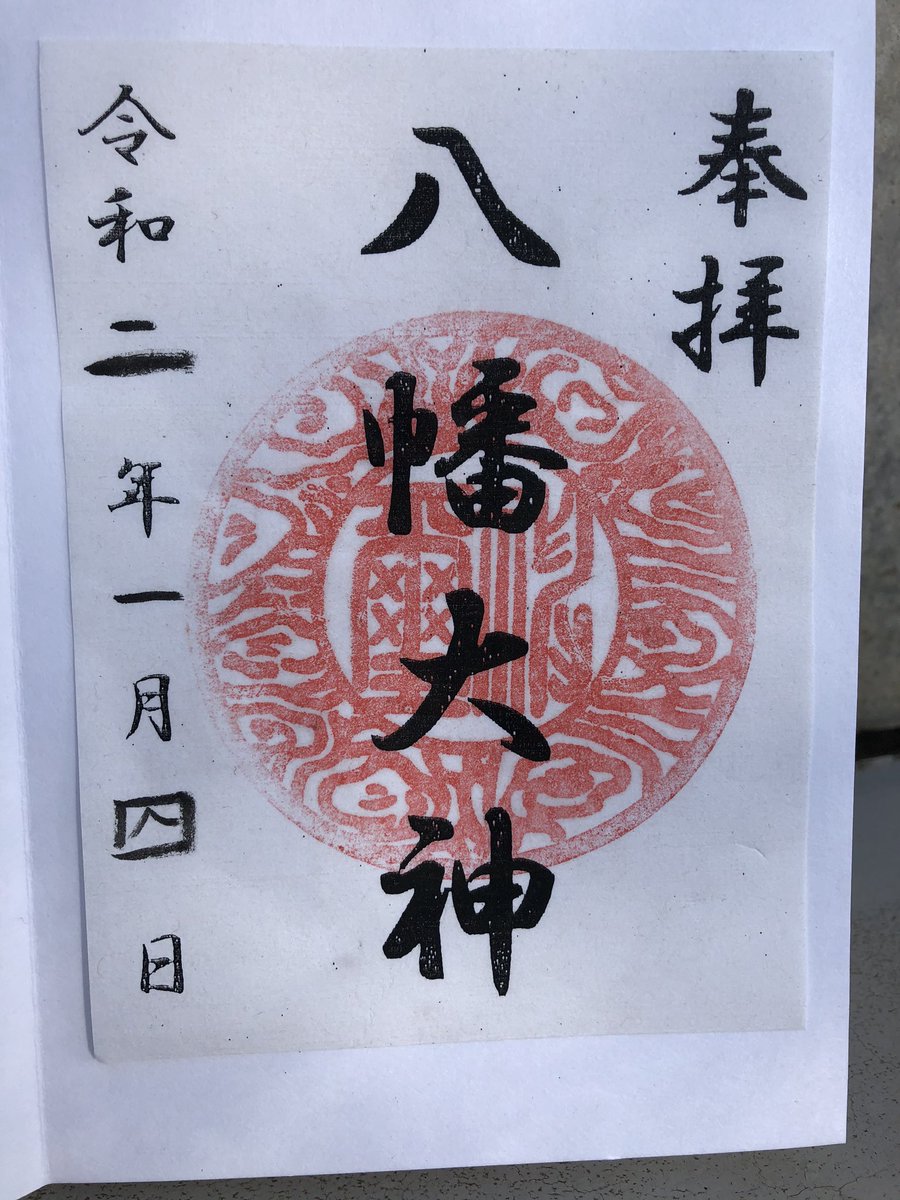 奉拝
八幡大神
令和二年一月四日